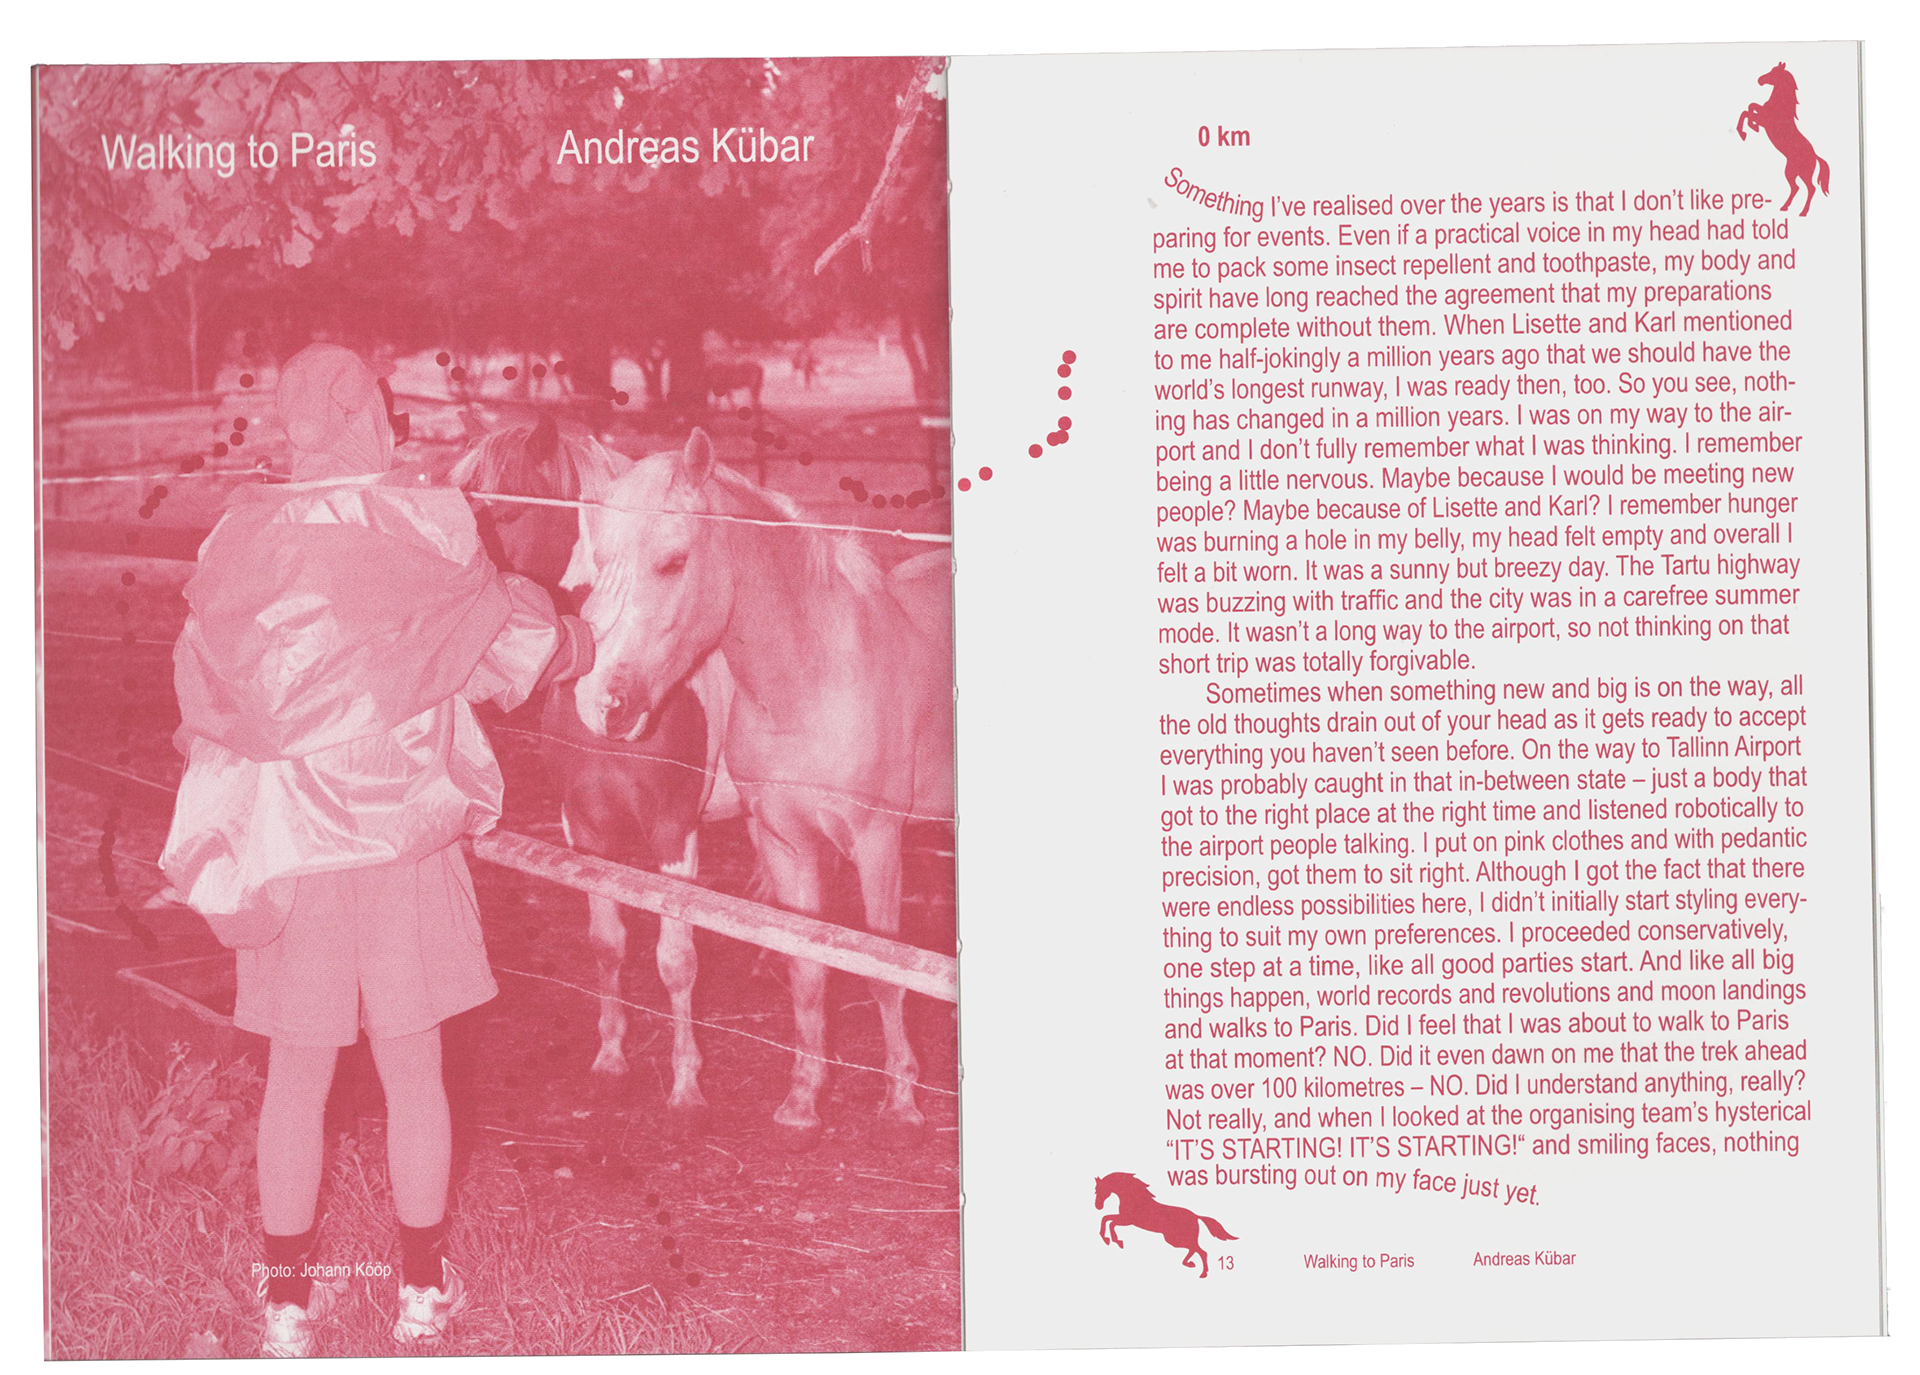 Walking to Paris
Andreas Kübar
Photo: Johann Kööp
0 km
Something I've realised over the years is that I don't like pre-
paring for events. Even if a practical voice in my head had told
me to pack some insect repellent and toothpaste, my body and
spirit have long reached the agreement that my preparations
are complete without them. When Lisette and Karl mentioned
to me half-jokingly a million years ago that we should have the
world's longest runway, I was ready then, too. So you see, noth-
ing has changed in a million years. I was on my way to the air-
port and I don't fully remember what I was thinking. I remember
being a little nervous. Maybe because I would be meeting new
people? Maybe because of Lisette and Karl? I remember hunger
was burning a hole in my belly, my head felt empty and overall I
felt a bit worn. It was a sunny but breezy day. The Tartu highway
was buzzing with traffic and the city was in a carefree summer
mode. It wasn't a long way to the airport, so not thinking on that
short trip was totally forgivable.
Sometimes when something new and big is on the way, all
the old thoughts drain out of your head as it gets ready to accept
everything you haven't seen before. On the way to Tallinn Airport
I was probably caught in that in-between state – just a body that
got to the right place at the right time and listened robotically to
the airport people talking. I put on pink clothes and with pedantic
precision, got them to sit right. Although I got the fact that there
were endless possibilities here, I didn't initially start styling every-
thing to suit my own preferences. I proceeded conservatively,
one step at a time, like all good parties start. And like all big
things happen, world records and revolutions and moon landings
and walks to Paris. Did I feel that I was about to walk to Paris
at that moment? NO. Did it even dawn on me that the trek ahead
was over 100 kilometres – NO. Did I understand anything, really?
Not really, and when I looked at the organising team's hysterical
“IT'S STARTING! IT'S STARTING!“ and smiling faces, nothing
was bursting out on my face just yet.
13 Walking to Paris Andreas Kübar